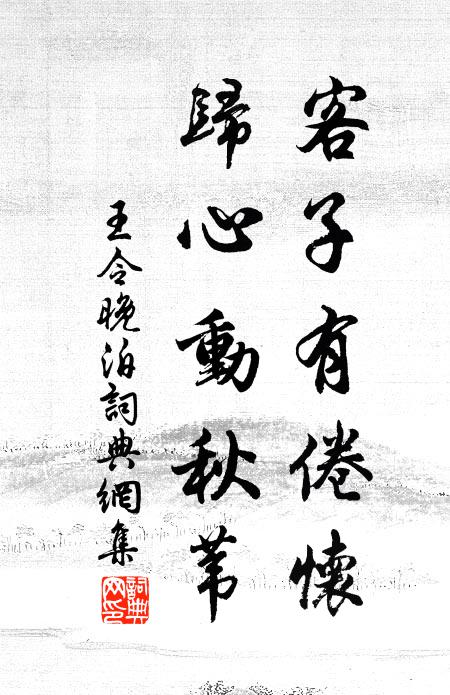 客子有倦懷
歸心動秋葦
王令晚泊詞典網集